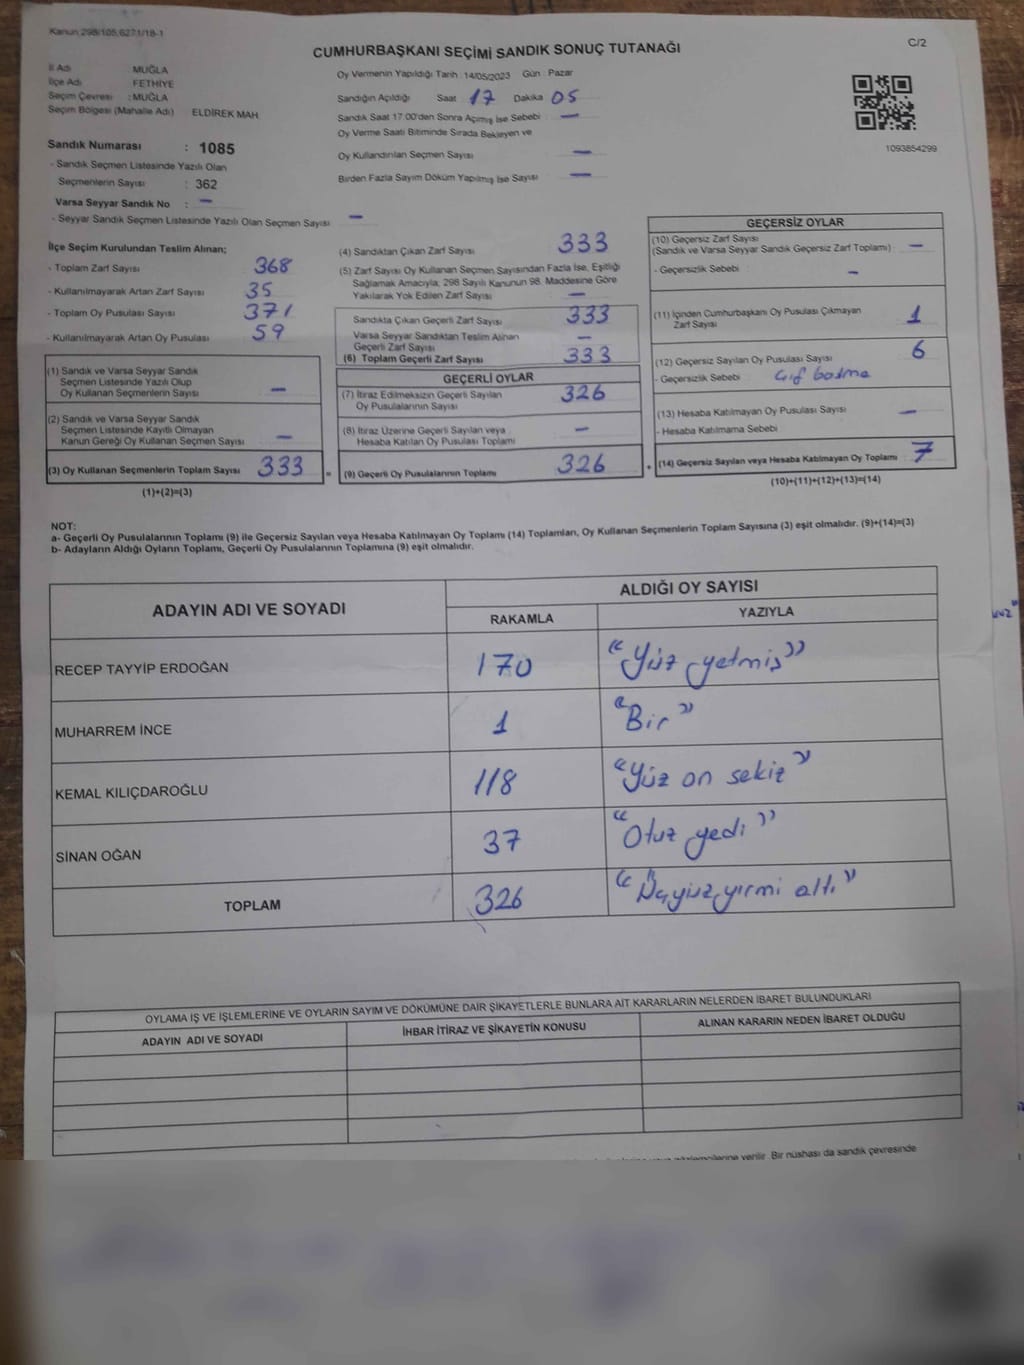 Kanun 298/105,6271/18-1
C/2
CUMHURBAŞKANI SEÇİMİ SANDIK SONUÇ TUTANAĞI
İl Adı MUĞLA
İlçe Adı FETHİYE
Seçim Çevresi : MUĞLA
Seçim Bölgesi (Mahalle Adı) ELDİREK MAH.
Sandık Numarası : 1085
- Sandık Seçmen Listesinde Yazılı Olan
Seçmenlerin Sayısı : 362
Varsa Seyyar Sandık No : —
- Seyyar Sandık Seçmen Listesinde Yazılı Olan Seçmen Sayısı —
Oy Vermenin Yapıldığı Tarih : 14/05/2023 Gün : Pazar
Sandığın Açıldığı Saat 17 Dakika 05
Sandık Saat 17.00'den Sonra Açımış İse Sebebi : —
Oy Verme Saati Bitiminde Sırada Bekleyen ve
Oy Kullandırılan Seçmen Sayısı —
Birden Fazla Sayım Döküm Yapılmış İse Sayısı —
1093854299
İlçe Seçim Kurulundan Teslim Alınan;
- Toplam Zarf Sayısı 368
- Kullanılmayarak Artan Zarf Sayısı 35
- Toplam Oy Pusulası Sayısı 371
- Kullanılmayarak Artan Oy Pusulası 59
(1) Sandık ve Varsa Seyyar Sandık
Seçmen Listesinde Yazılı Olup
Oy Kullanan Seçmenlerin Sayısı —
(2) Sandık ve Varsa Seyyar Sandık
Seçmen Listesinde Kayıtlı Olmayan
Kanun Gereği Oy Kullanan Seçmen Sayısı —
(3) Oy Kullanan Seçmenlerin Toplam Sayısı 333 =
(1)+(2)=(3)
(4) Sandıktan Çıkan Zarf Sayısı 333
(5) Zarf Sayısı Oy Kullanan Seçmen Sayısından Fazla İse, Eşitliği
Sağlamak Amacıyla, 298 Sayılı Kanunun 98. Maddesine Göre
Yakılarak Yok Edilen Zarf Sayısı —
Sandıkta Çıkan Geçerli Zarf Sayısı 333
Varsa Seyyar Sandıktan Teslim Alınan
Geçerli Zarf Sayısı —
(6) Toplam Geçerli Zarf Sayısı 333
GEÇERLİ OYLAR
(7) İtiraz Edilmeksizin Geçerli Sayılan
Oy Pusulalarının Sayısı 326
(8) İtiraz Üzerine Geçerli Sayılan veya
Hesaba Katılan Oy Pusulası Toplamı —
(9) Geçerli Oy Pusulalarının Toplamı 326 +
GEÇERSİZ OYLAR
(10) Geçersiz Zarf Sayısı
(Sandık ve Varsa Seyyar Sandık Geçersiz Zarf Toplamı) —
- Geçersizlik Sebebi —
(11) İçinden Cumhurbaşkanı Oy Pusulası Çıkmayan
Zarf Sayısı 1
(12) Geçersiz Sayılan Oy Pusulası Sayısı 6
- Geçersizlik Sebebi Çif basma
(13) Hesaba Katılmayan Oy Pusulası Sayısı —
- Hesaba Katılmama Sebebi
(14) Geçersiz Sayılan veya Hesaba Katılmayan Oy Toplamı 7
(10)+(11)+(12)+(13)=(14)
NOT:
a- Geçerli Oy Pusulalarının Toplamı (9) ile Geçersiz Sayılan veya Hesaba Katılmayan Oy Toplamı (14) Toplamları, Oy Kullanan Seçmenlerin Toplam Sayısına (3) eşit olmalıdır. (9)+(14)=(3)
b- Adayların Aldığı Oyların Toplamı, Geçerli Oy Pusulalarının Toplamına (9) eşit olmalıdır.
ADAYIN ADI VE SOYADI
ALDIĞI OY SAYISI
RAKAMLA YAZIYLA
RECEP TAYYİP ERDOĞAN 170 "Yüz yetmiş"
MUHARREM İNCE 1 "Bir"
KEMAL KILIÇDAROĞLU 118 "Yüz on sekiz"
SİNAN OĞAN 37 "Otuz yedi"
TOPLAM 326 "Üçyüzyirmi altı"
OYLAMA İŞ VE İŞLEMLERİNE VE OYLARIN SAYIM VE DÖKÜMÜNE DAİR ŞİKAYETLERLE BUNLARA AİT KARARLARIN NELERDEN İBARET BULUNDUKLARI
ADAYIN ADI VE SOYADI İHBAR İTİRAZ VE ŞİKAYETİN KONUSU ALINAN KARARIN NEDEN İBARET OLDUĞU
verilir. Bir nüshası da sandık çevresinde